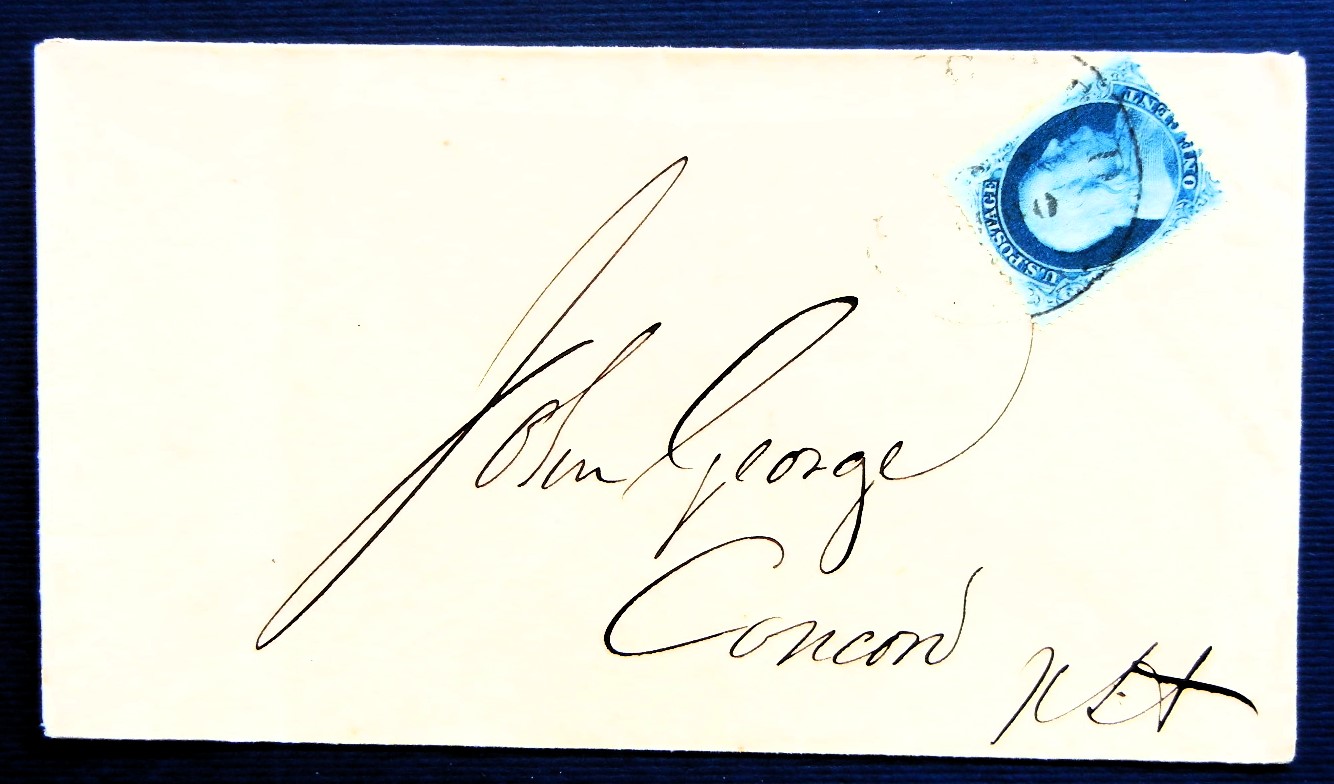 U.S. POSTAGE
ONE CENT
John George
Concord
N.H